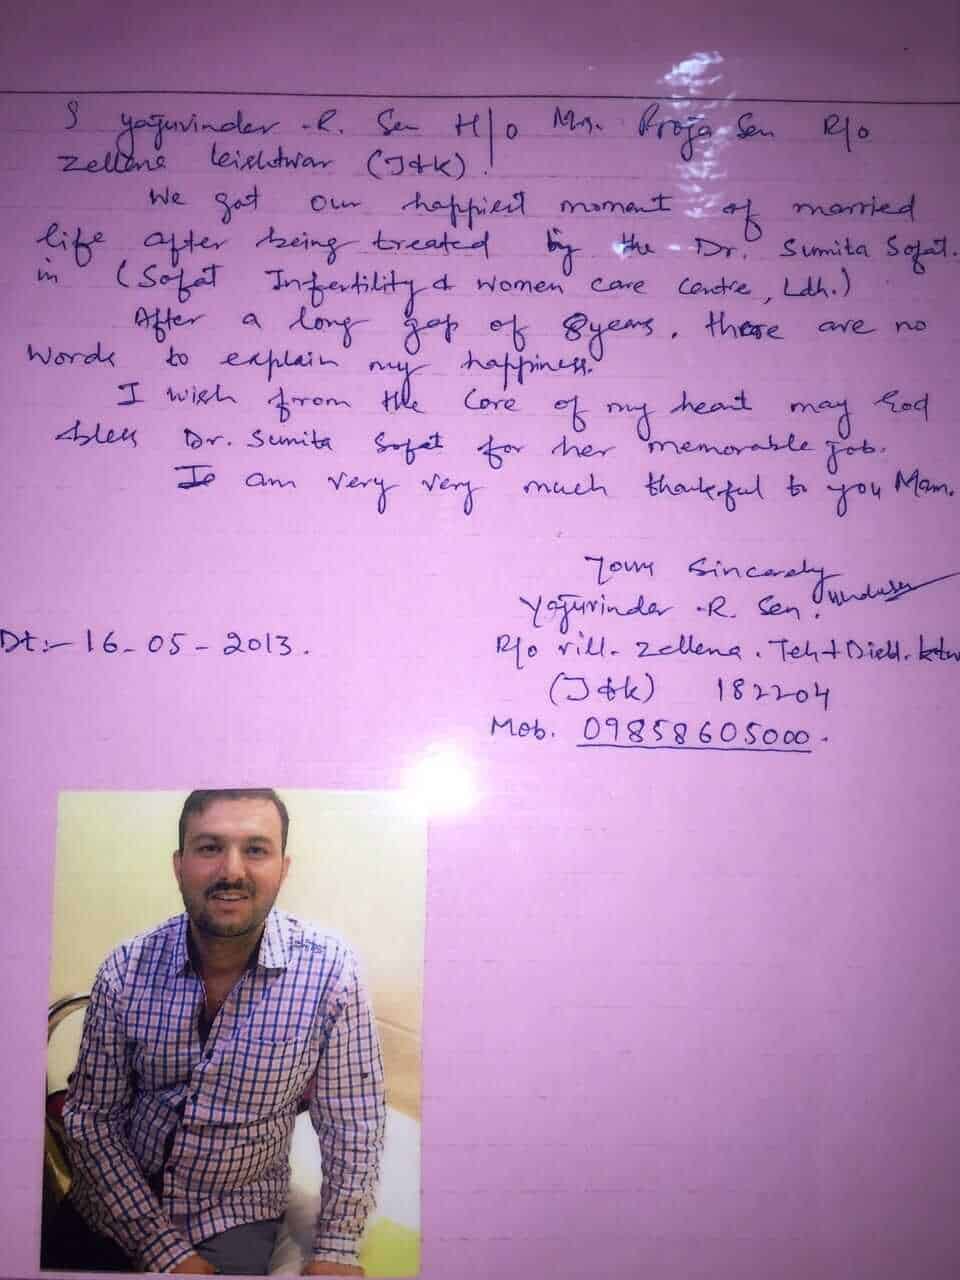 I Yajurvinder -R. Sen H/o Mrs. Pooja Sen R/o
Zellena Keishtwar (J&K).
We got our happiest moment of married
life after being treated by the Dr. Sumita Sofat.
in (Sofat Infertility & women care centre, Ldh.)
After a long gap of 8years. there are no
words to explain my happiness.
I wish from the core of my heart may God
bless Dr. Sumita Sofat for her memorable job.
I am very very much thankful to you Mam.
Yours Sincerely
Yajurvinder -R. Sen.
Dt:- 16-05-2013.
R/o vill. Zellena. Teh + Distt.
(J&K) 182204
Mob. 09858605000.